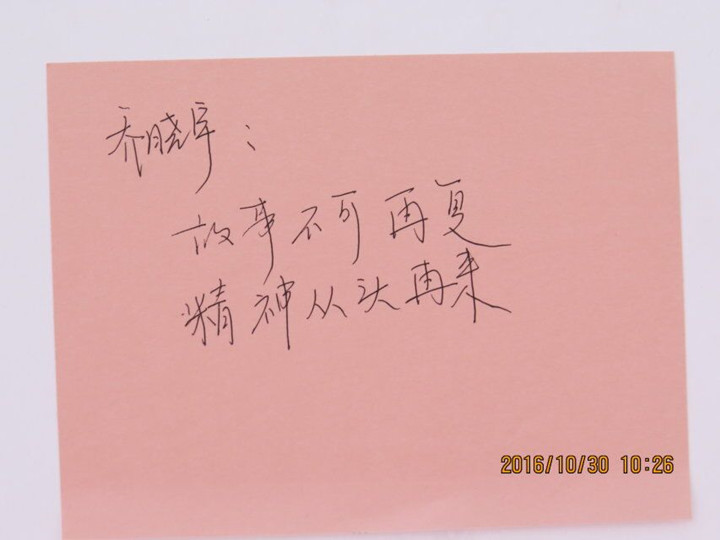 乔晓军：
故事不可再复
精神从头再来
2016/10/30 10:26